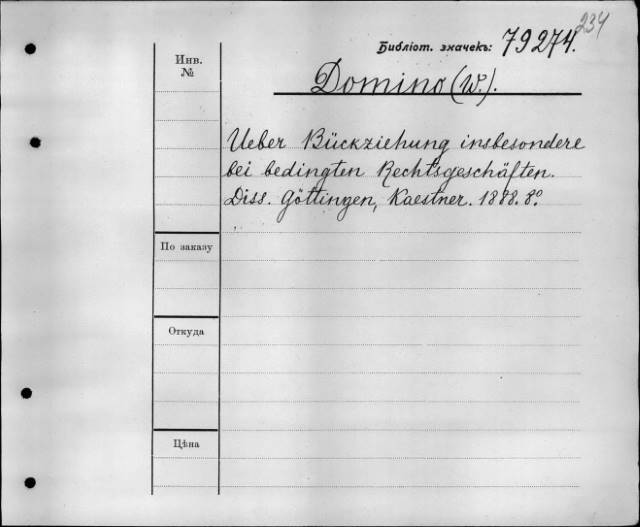 234
Библіот. значекъ: 79274.
Инв.
№
Domino (W.).
Ueber Bückziehung insbesondere
bei bedingten Rechtsgeschäften.
Diss. Göttingen, Kaestner. 1888. 8º
По заказу
Откуда
Цѣна